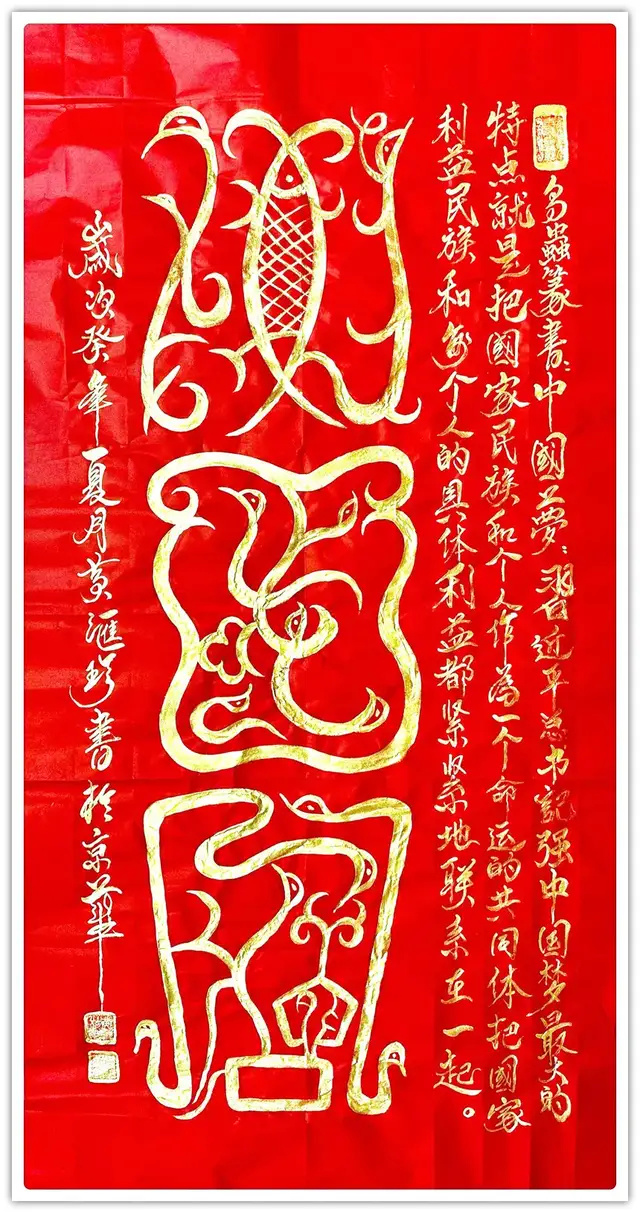 鸟蟲篆書：中國夢：習近平总书記强中国梦最大的
特点就是把國家民族和个人作為一个命运的共同体把國家
利益民族和每个人的具体利益都紧紧地联系在一起。
歲次癸年夏月黄滙珍書於京華